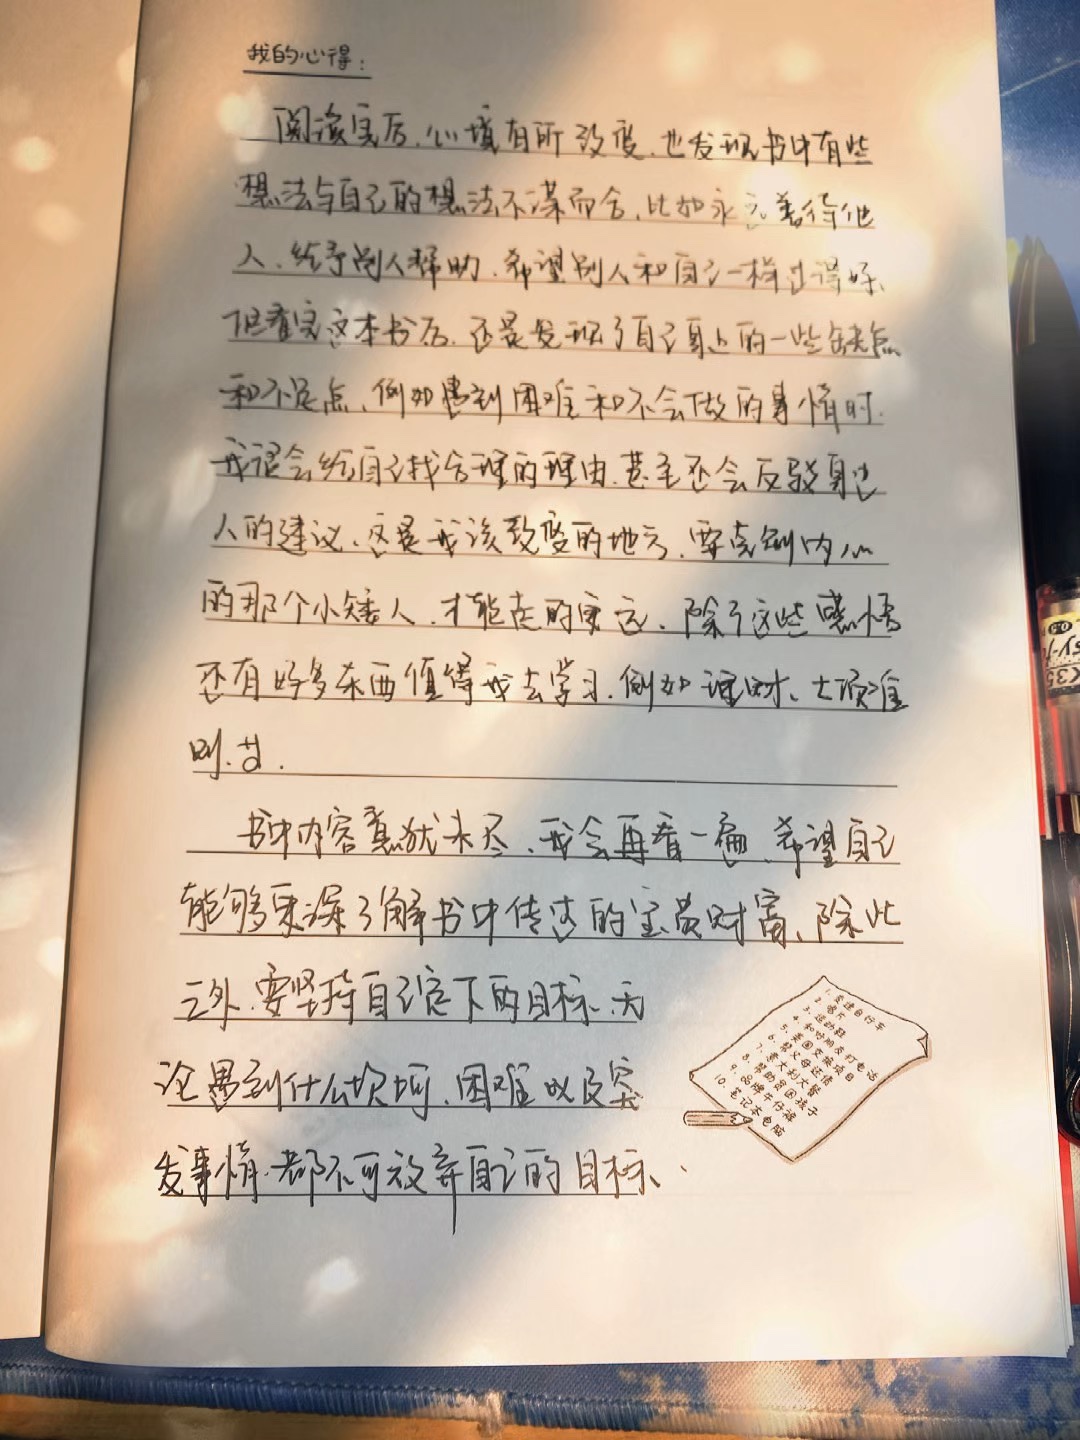 我的心得：
阅读完后，心境有所改变，也发现书中有些
想法与自己的想法不谋而合，比如永远善待他
人、给予别人帮助、希望别人和自己一样过得好、
但看完这本书后，还是发现了自己身上的一些缺点
和不足点、例如遇到困难和不会做的事情时，
我很会给自己找合理的理由，甚至还会反驳身边
人的建议、这是我该改变的地方，要克制内心
的那个小矮人，才能走的更远、除了这些感悟
还有好多东西值得我去学习，例如理财、七项准
则，
书中内容意犹未尽，我会再看一遍，希望自己
能够更深了解书中传达的宝贵财富、除此
之外，要坚持自己定下的目标、无
论遇到什么坎坷、困难以及突
发事情，都不可放弃自己的目标、
1. 变速自行车
2. 唱片
3. 运动鞋
4. 和好朋友打电话
5. 美国交换项目
6. 帮父母还债
7. 意大利大餐
8. 帮助贫困孩子
9. 品牌牛仔裤
10. 笔记本电脑